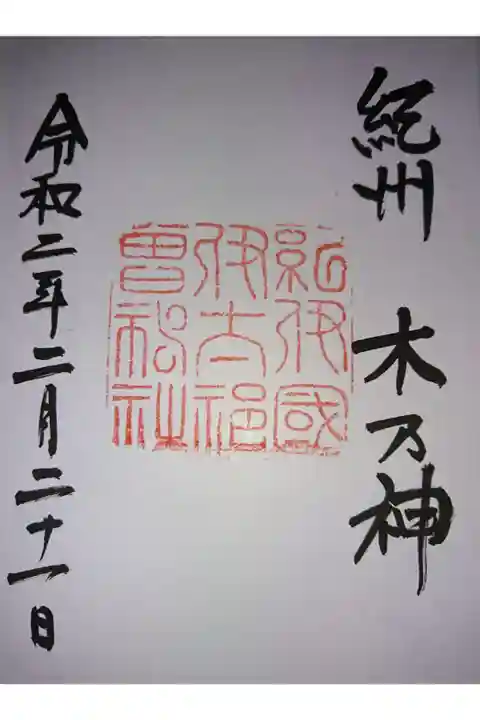 紀州 木乃神
紀伊國
伊太祁
曽神社
令和二年二月二十一日